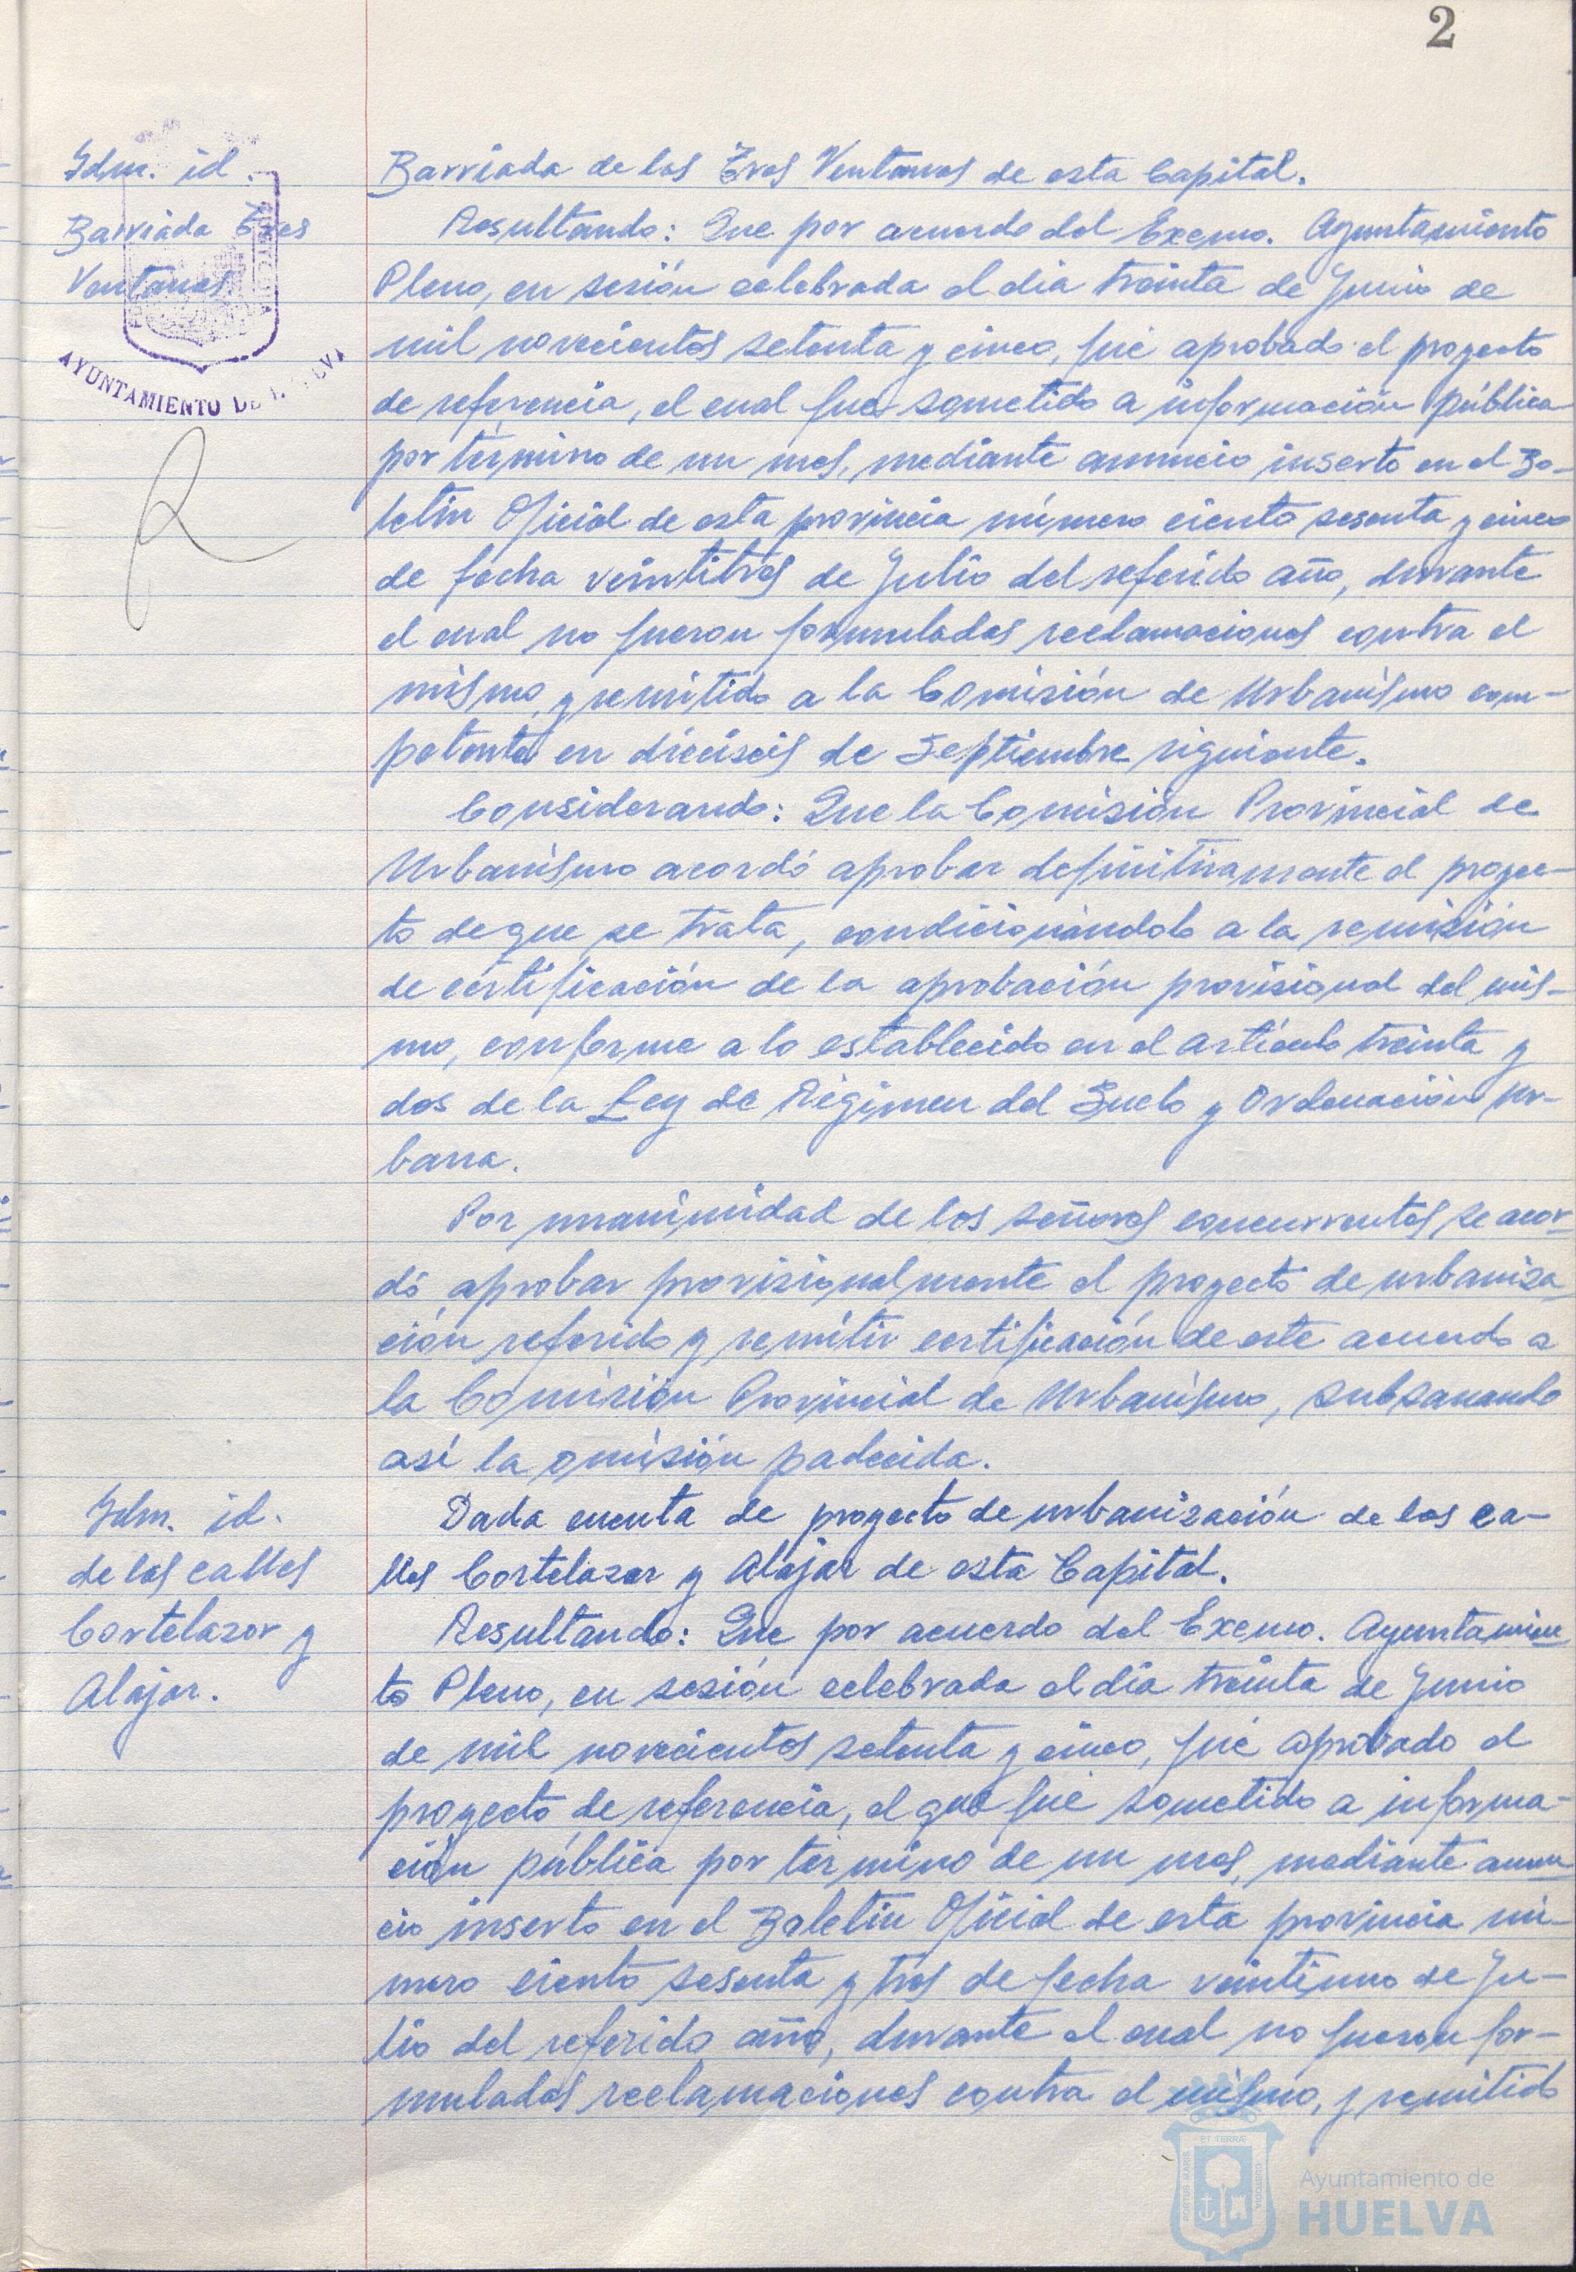 2
Idm. id.
Barriada Tres
Ventanas
AYUNTAMIENTO DE
Barriada de las Tres Ventanas de esta Capital.
Resultando: Que por acuerdo del Excmo. Ayuntamiento
Pleno, en sesión celebrada el día treinta de Junio de
mil novecientos setenta y cinco, fué aprobado el proyecto
de referencia, el cual fue sometido a información pública
por término de un mes, mediante anuncio inserto en el Bo-
letín Oficial de esta provincia número ciento sesenta y cinco
de fecha veintitres de Julio del referido año, durante
el cual no fueron formuladas reclamaciones contra el
mismo, y remitido a la Comisión de Urbanismo com-
petente en dieciseis de Septiembre siguiente.
Considerando: Que la Comisión Provincial de
Urbanismo acordó aprobar definitivamente el proyec-
to de que se trata, condicionándolo a la remisión
de certificación de la aprobación provisional del mis-
mo, conforme a lo establecido en el artículo treinta y
dos de la Ley de Régimen del Suelo y Ordenación Ur-
bana.
Por unanimidad de los señores concurrentes se acor-
dó aprobar provisionalmente el proyecto de urbaniza
ción referido y remitir certificación de este acuerdo a
la Comisión Provincial de Urbanismo, subsanando
así la omisión padecida.
Idm. id.
de las calles
Cortelazor y
Alajar.
Dada cuenta de proyecto de urbanización de las ca-
lles Cortelazor y Alajar de esta Capital.
Resultando: Que por acuerdo del Excmo. Ayuntamien
to Pleno, en sesión celebrada el día treinta de Junio
de mil novecientos setenta y cinco, fué aprobado el
proyecto de referencia, el que fué sometido a informa-
ción pública por término de un mes, mediante anun
cio inserto en el Boletín Oficial de esta provincia nú-
mero ciento sesenta y tres de fecha veintiuno de Ju-
lio del referido año, durante el cual no fueron for-
muladas reclamaciones contra el mismo, y remitido
Ayuntamiento de
HUELVA